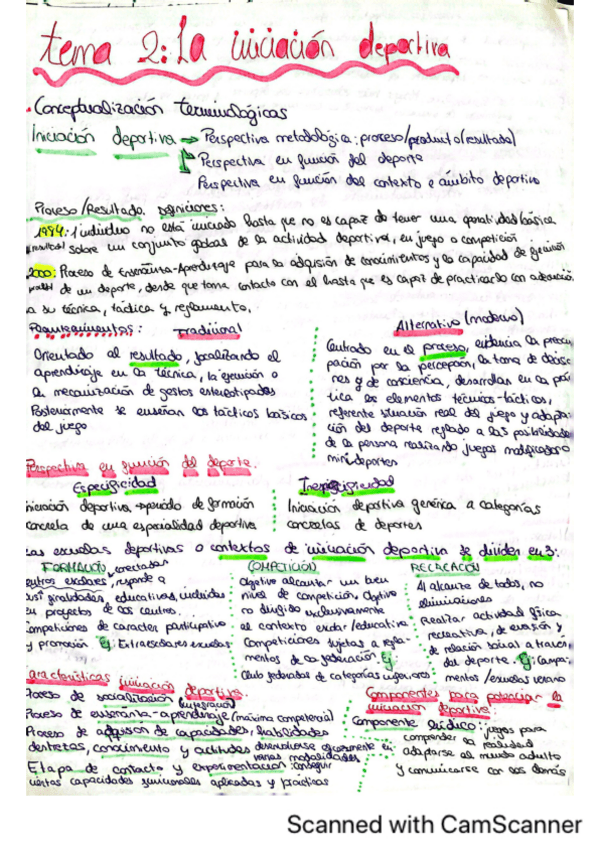 tema 2: La iniciación deportiva
Conceptualización terminológicas
Iniciación deportiva → Perspectiva metodológica: proceso/producto (resultado)
Perspectiva en función del deporte
Perspectiva en función del contexto e ámbito deportivo
Proceso/Resultado. Definiciones:
1984: 1 individuo no está iniciado hasta que no es capaz de tener una operatividad básica
(resultado) sobre un conjunto global de la actividad deportiva, en juego o competición
2000: Proceso de Enseñanza-Aprendizaje para la adquisión de conocimientos y la capacidad de ejecución
de un deporte, desde que toma contacto con el hasta que es capaz de practicarlo con adecuació.
a su técnica, táctica y reglamento.
Tradicional
Orientado al resultado, focalizando el
aprendizaje en la técnica, la ejecución o
la mecanización de gestos estereotipados
Posteriormente se enseñan los tácticos básicos
del juego
Alternativo (moderno)
Centrado en el proceso, evidencia la preocu
pación por la percepción, la toma de decisio
nes y de consciencia, desarrollan en la prá
tica los elementos técnicos-tácticos,
referente situación real del juego y adapta-
ción del deporte reglado a las posibilidades
de la persona realizando juegos modificados o
minideportes
Perspectiva en función del deporte.
Especificidad
iniciación deportiva → periodo de formación
concreta de una especialidad deportiva
Inespecificidad
Iniciación deportiva genérica a categorías
concretas de deportes
Las escuelas deportivas o contextos de iniciación deportiva se dividen en 3:
FORMACIÓN, conectadas
centros escolares, responde a
sus finalidades, educativas, incluidas
en proyectos de los centros.
competiciones de caracter participativo
y promoción. Ej: Extraescolares escuelas
COMPETICIÓN
Objetivo alcanzar un buen
nivel de competición, objetivo
no dirigido exclusivamente
al contexto escolar/educativo
Competiciones sujetas a regla-
mentos de la federación. Ej
Club federados de categorías inferiores
RECREACIÓN
Al alcance de todos, no
eliminaciones
Realitar actividad física
recreativa, de evasión y
de relación social a través
del deporte. Ej: Campa-
mentos / escuelas verano
Características iniciación deportiva.
Proceso de socialización (integración)
Proceso de enseñanza-aprendizaje (máxima competencia)
Proceso de adquisón de capacidades, habilidades
destrezas, conocimiento y actitudes desenvolverse eficazmente en
varias modalidades
Etapa de contacto y experimentación: conseguir
ciertas capacidades funcionales aplicadas y prácticas
Componentes para potenciar la
iniciación deportiva:
Componente lúdico: juegos para
comprender la realidad
adaptarse al mundo adulto
y comunicarse con los demás
Scanned with CamScanner